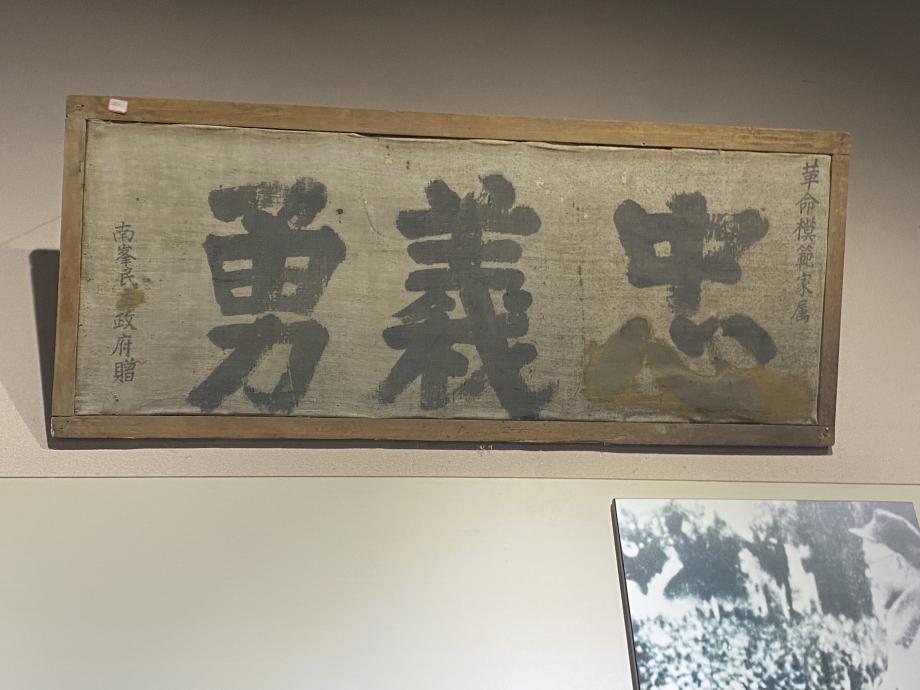 革命模範家属
忠義勇
南峯民主政府贈